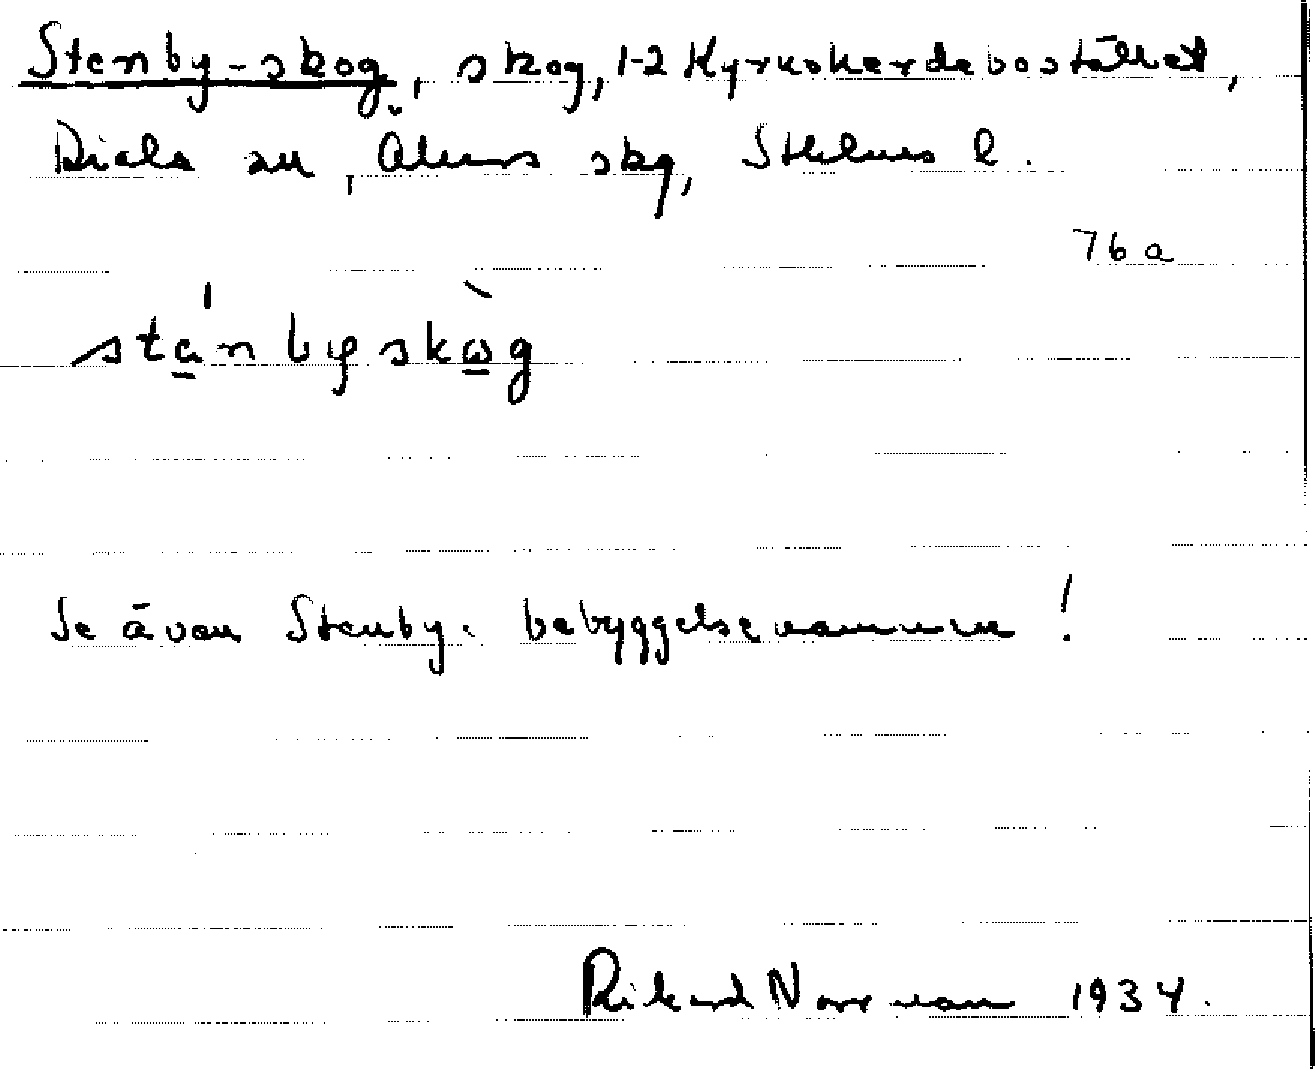 Stenby-skog, skog, 1-2 Kyrkoherdebostället,
Riala sn, Åkers skg, Sthlms l.
76a
stą́nbyskὼg
Se även Stenby. bebyggelsenamnen!
Rikard Norrman 1934.